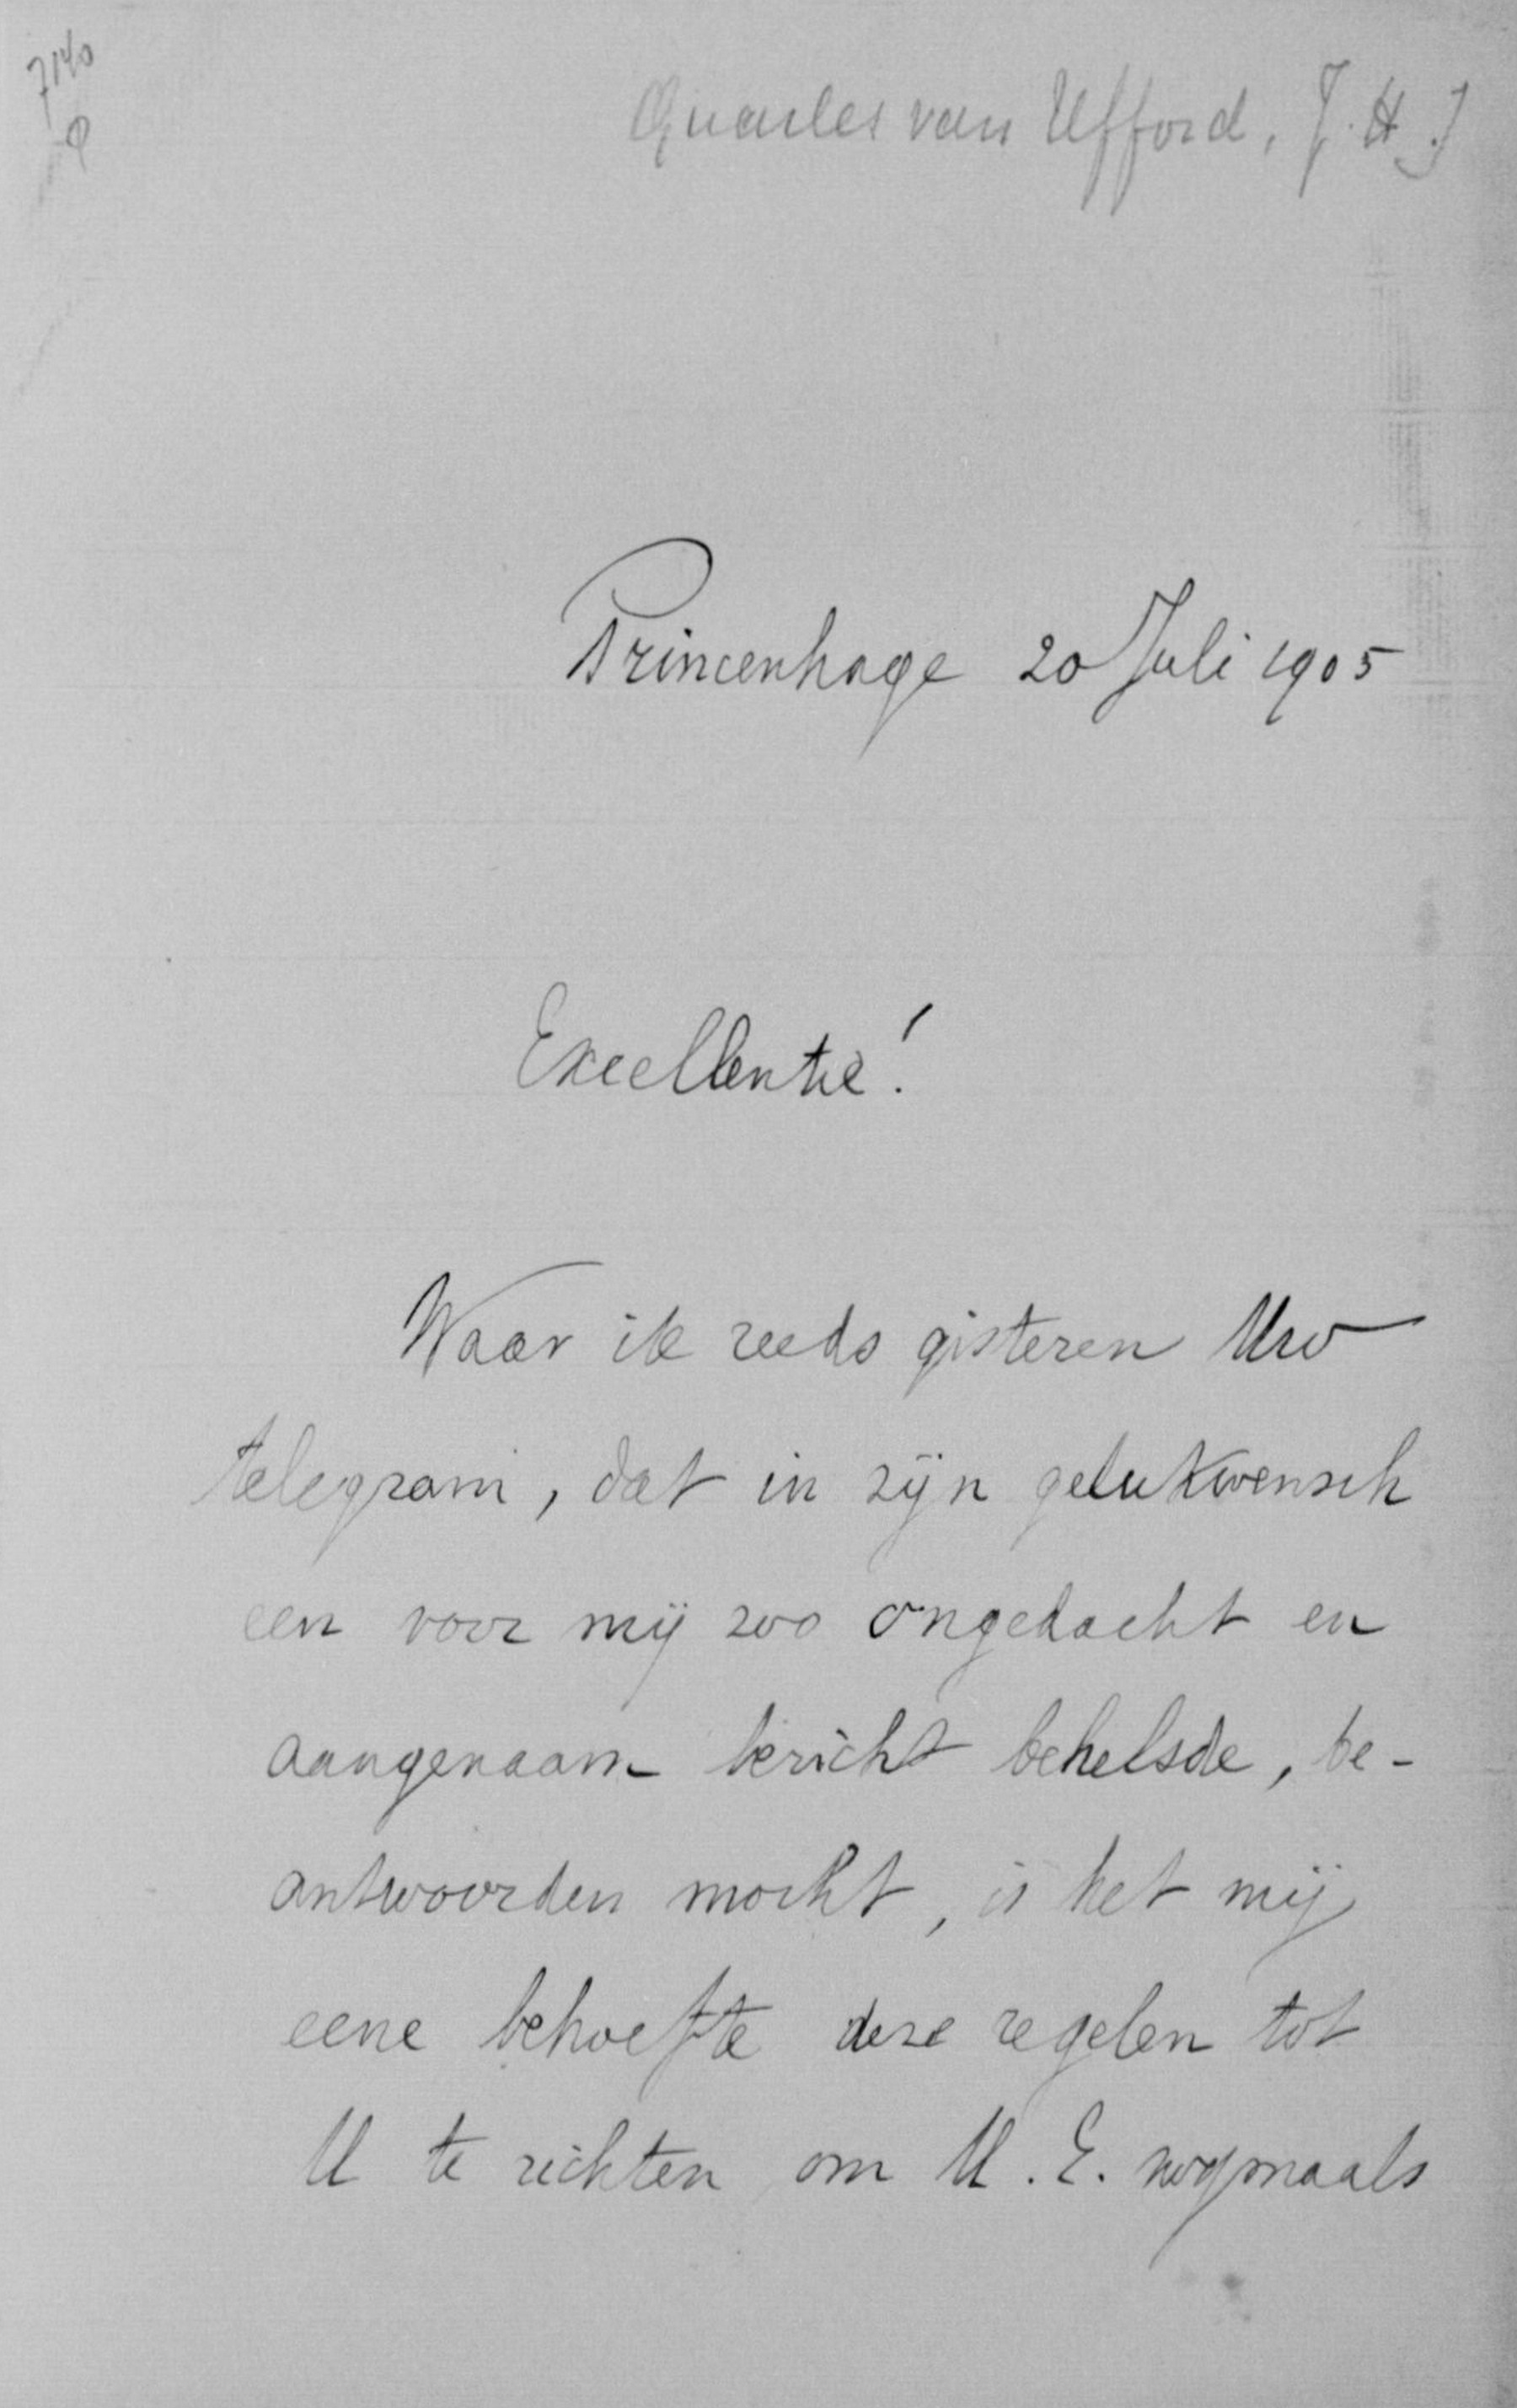 7140
Quarles van Ufford, J. H. J
Princenhage 20 Juli 1905
Excellentie!
Waar ik reeds gisteren Uw
telegram, dat in zijn gelukwensch
een voor mij zoo ongedacht en
aangenaam bericht behelsde, be-
antwoorden mocht, is het mij
eene behoefte deze regelen tot
U te richten om U. E. nogmaals